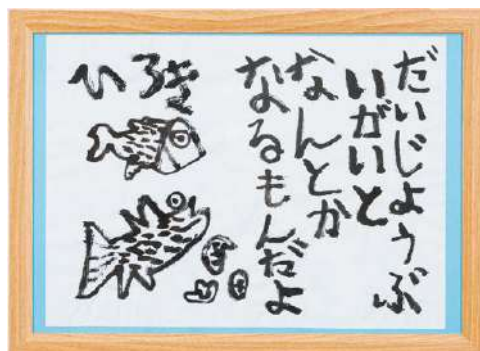 だいじょうぶ
いがいと
なんとか
なるもんだよ
ひろき